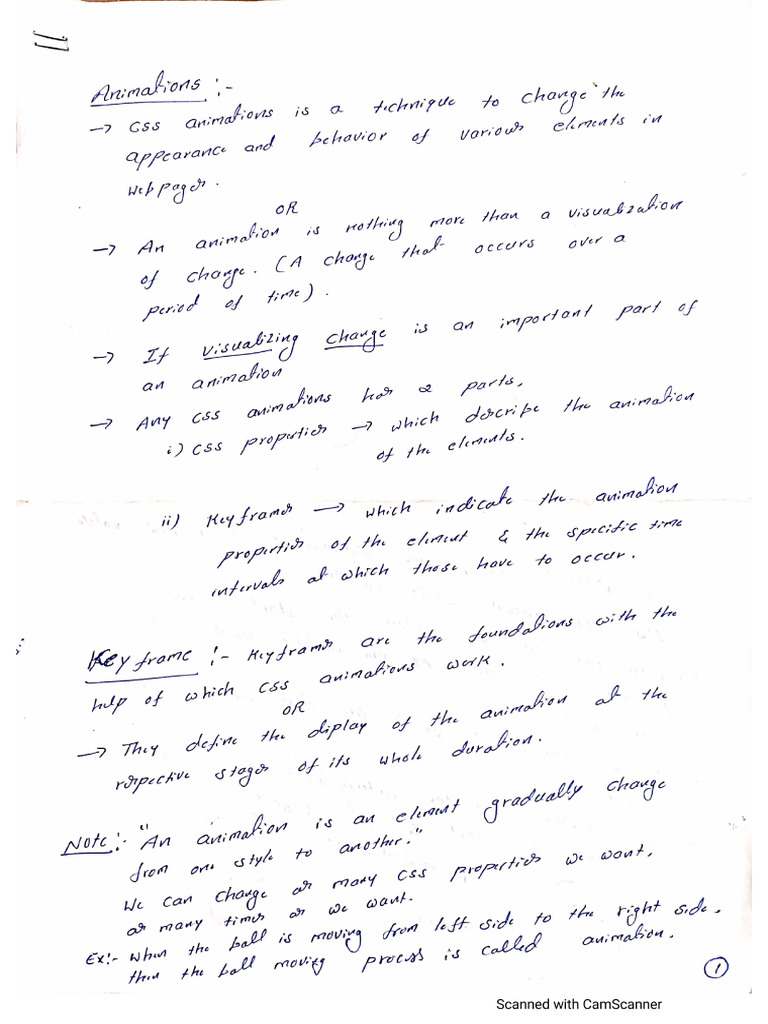 Animations :-
→ CSS animations is a technique to change the
appearance and behavior of various elements in
webpages.
OR
→ An animation is nothing more than a visualization
of change. (A change that occurs over a
period of time).
→ If visualizing change is an important part of
an animation
→ Any CSS animations has 2 parts,
i) CSS properties → which describe the animation
of the elements.
ii) Keyframes → which indicate the animation
properties of the element & the specific time
intervals at which those have to occur.
Keyframe :- Keyframes are the foundations with the
help of which CSS animations work.
OR
→ They define the display of the animation at the
respective stages of its whole duration.
Note :- "An animation is an element gradually change
from one style to another."
We can change as many CSS properties we want,
as many times as we want.
Ex:- When the ball is moving from left side to the right side.
then the ball moving process is called animation.
1
Scanned with CamScanner